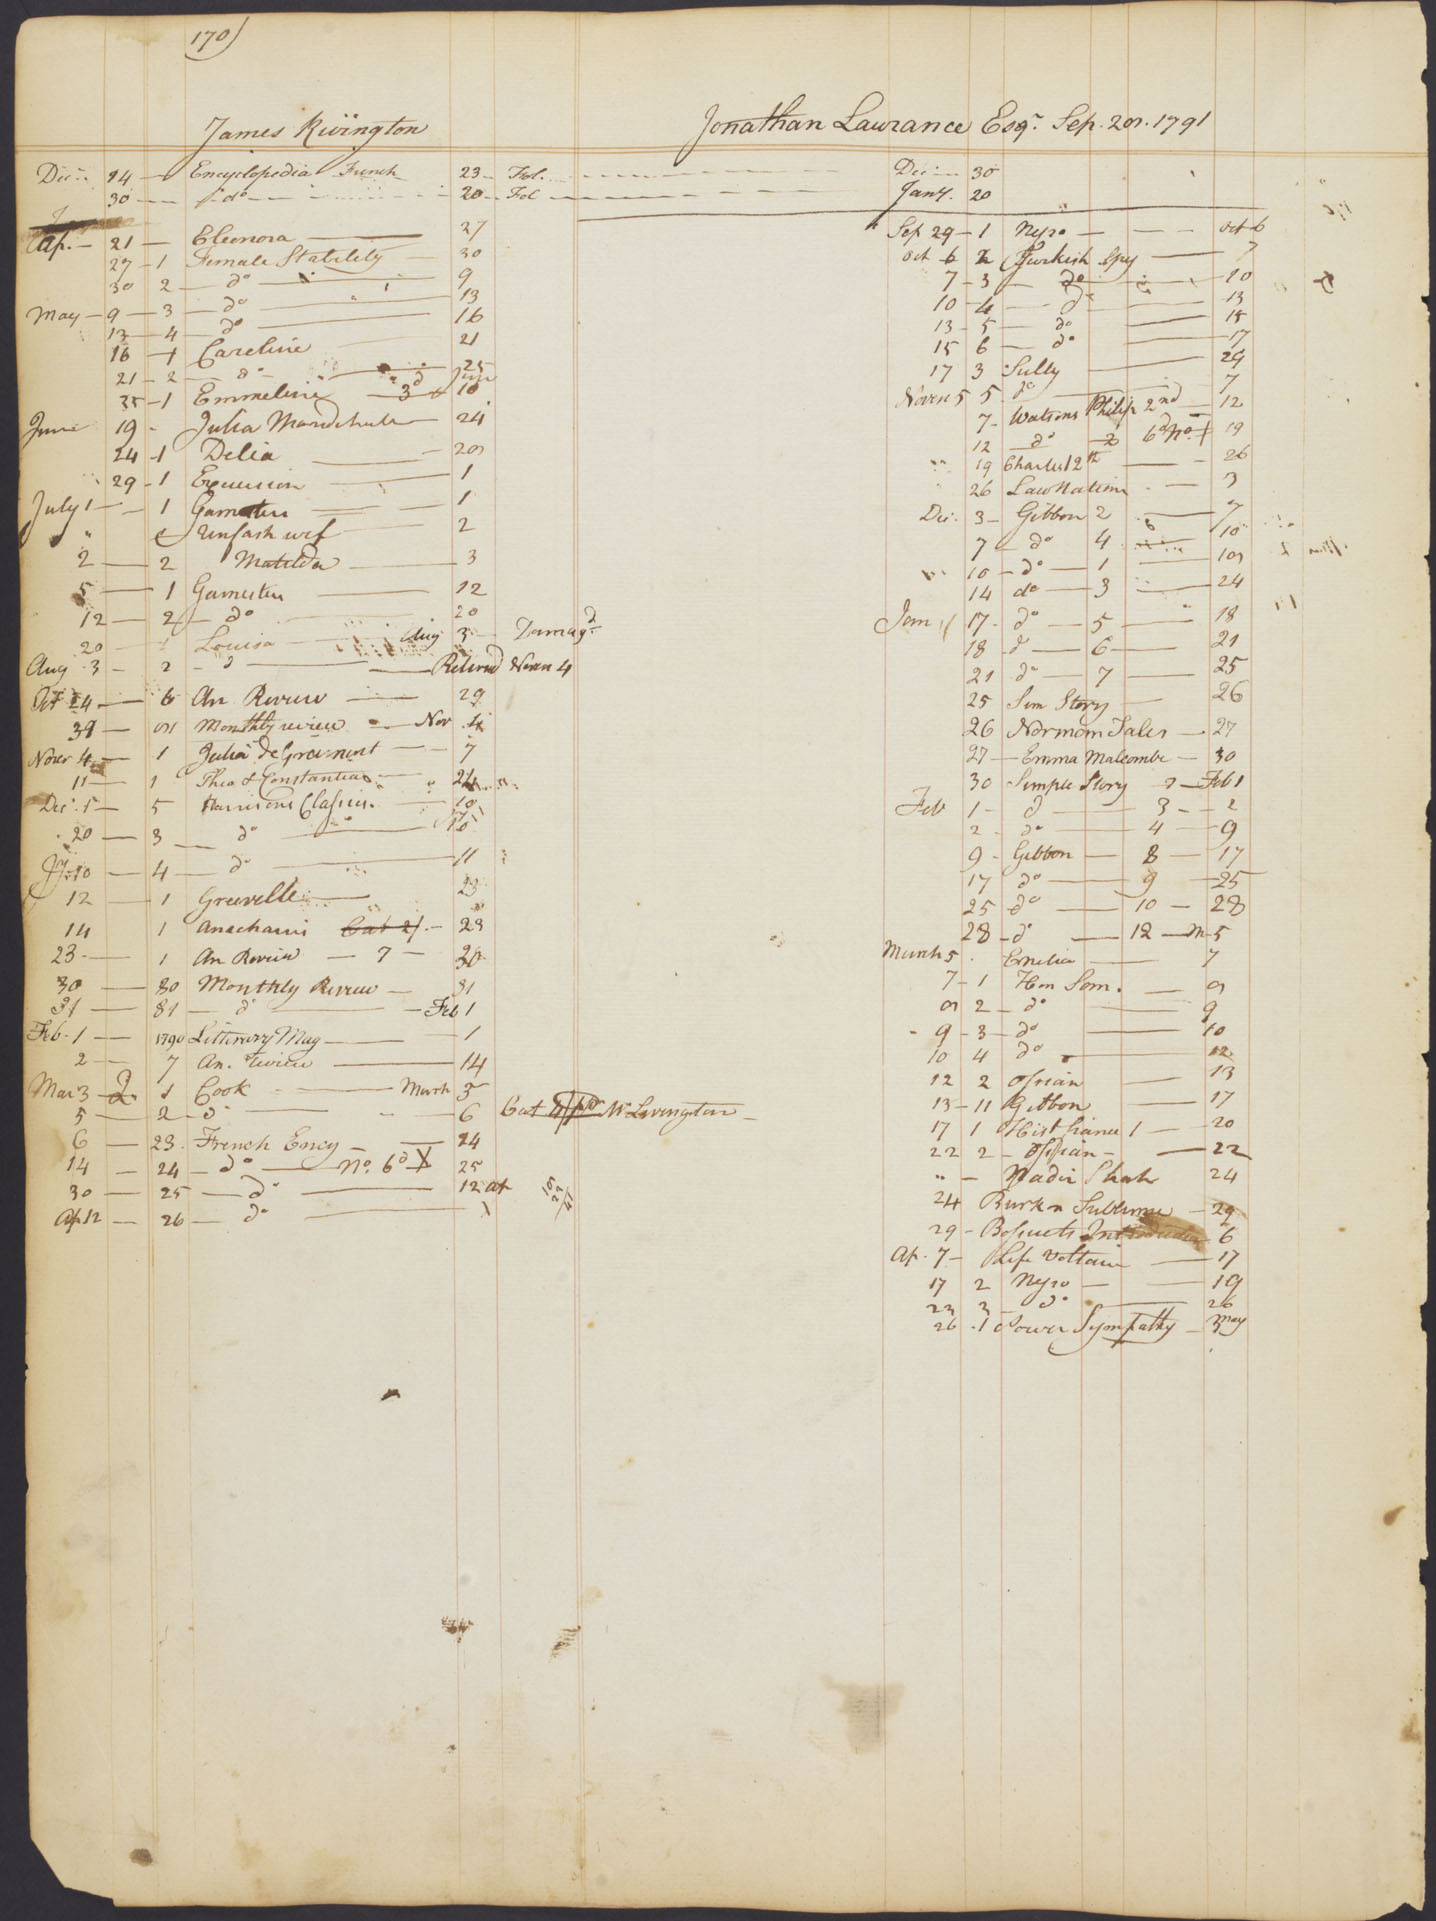 170)
James Rivington
Dec. 14 — Encyclopedia French 23 — Fol.
30 — do — 20 — Fol
Ap. — 21 — Eleonora — 27
27 — 1 Female Stability — 30
30 2 — do — 9
May — 9 — 3 — do — 13
13 — 4 — do — 16
16 — 1 Careline 21
21 — 2 — do — 25
25 — 1 Emmeline — 3d June 10
June 19 - Julia Mandeville — 24
24 — 1 Delia — 29
29 — 1 Excursion 1
July 1 — 1 Gamesters — 1
" & Unfash wif 2
2 — 2 Matilda — 3
5 — 1 Gamesters — 12
12 — 2 — do — 20
20 — 1 Louisa — Aug 3 — Damagd
Aug 3 — 2 — do — Returnd Novem 4
Oct 24 — 6 An Review — 29
29 — Monthly review — Nov 4
Novem 4 — 1 Julia de Gramont — 7
11 — 1 Theo & Constantia — 24
Dec. 5 — 5 Harrisons Classics — 10
20 — 3 — do — 10
Jy. 10 — 4 — do — 11
12 — 1 Greville — 23
14 1 Anacharsis Cat 2/. — 23
23 — 1 An Review — 7 — 30
30 — 80 Monthly Review — 31
31 — 81 — do — Feb 1
Feb. 1 — 1790 Litterary Mag — 1
2 — 7 An. review — 14
Mar 3 — 1 Cook — March 5
5 — 2 — do — 6 Cat Mr Livingston —
6 — 23. French Ency — 14
14 — 24 — do — No. 6d X 25
30 — 25 — do — 12 ap
Ap 12 — 26 — do —
Jonathan Lawrance Esqr. Sep. 29. 1791
Dec — 30
Jany. 20
Sep 29 — 1 Nyro — Oct 6
Oct 6 2 Turkish Spy — 7
7 — 3 — do — 10
10 — 4 — do — 13
13 — 5 — do — 15
15 6 — do — 17
17 3 Sully — 29
Novem 5 5 do — 7
7 — Watsons Philip 2nd — 12
12 — do — 2 6d No. 1 19
19 Charles 12th — 26
26 Law Nations — 3
Dec. 3 — Gibbon 2 — 7
7 — do 4 — 10
10 — do — 1 — 19
14 do — 3 — 24
Jan 17 — do — 5 — 18
18 — do — 6 — 21
21 do — 7 — 25
25 Sim Story — 26
26 Normom Tales — 27
27 — Emma Malcombe — 30
30 Simple Story 2 — Feb 1
Feb 1 — do — 3 — 2
2 — do — 4 — 9
9 — Gibbon — 8 — 17
17 do — 9 — 25
25 do — 10 — 28
28 — do — 12 — M 5
March 5 . Emelia — 7
7 — 1 Hon Som. — 9
9 2 — do — 9
9 — 3 — do — 10
10 4 do — 12
12 2 Ossian — 13
13 — 11 Gibbon — 17
17 1 Hist france 1 — 20
22 2 — Ossian — 22
" — Nadir Shah 24
24 Burk n Sublime — 29
29 — Bossuets Introduction 6
Ap. 7 — Life Voltaire — 17
17 2 Nyro — 19
23 3 — do — 26
26 . 1 Power Sympathy — May 3